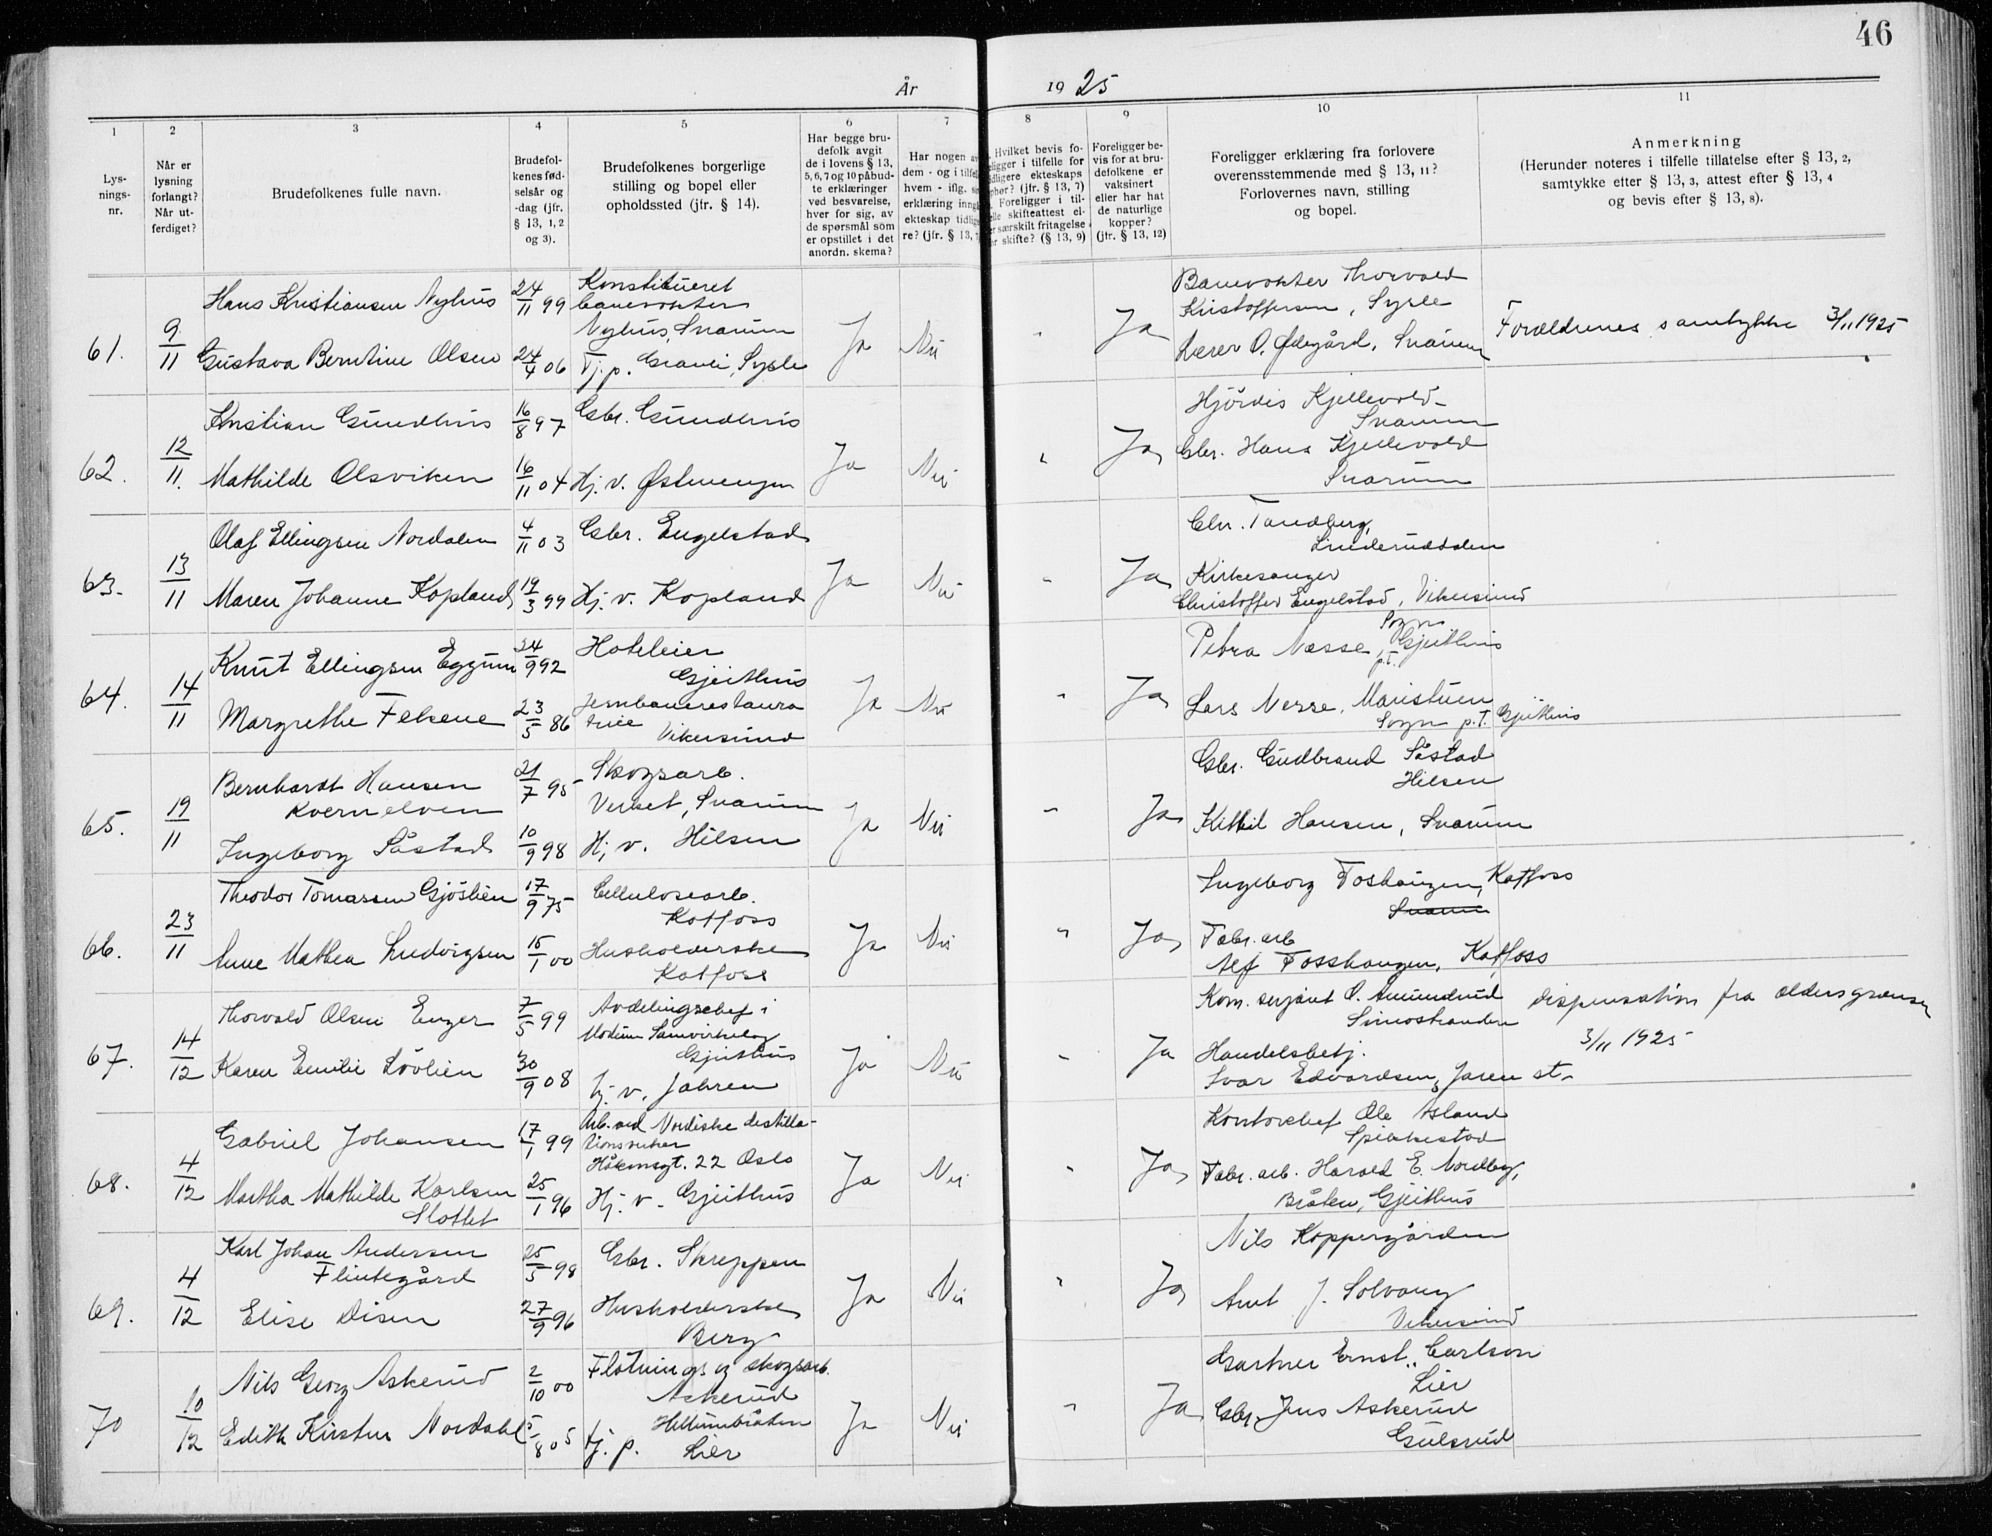 46
År 1925
1 2 3 4 5 6 7 8 9 10 11
Lys-
nings-
nr.
Når er
lysning
forlangt?
Når ut-
ferdiget?
Brudefolkenes fulle navn.
Brudefol-
kenes fød-
selsår og
-dag (jfr.
§ 13, 1,2
og 3).
Brudefolkenes borgerlige
stilling og bopel eller
opholdssted (jfr. § 14).
Har begge bru-
defolk avgit
de i lovens § 13,
5, 6, 7 og 10 påbud-
te erklæringer
ved besvarelse,
hver for sig, av
de spørsmål som
er opstillet i det
anordn. skema?
Har nogen av
dem - og i tilfel
hvem - iflg. si
erklæring inngå
ekteskap tidlig
re? (jfr. § 13, 7
Hvilket bevis fo-
religger i tilfelle for
tidligere ekteskaps
ophør? (jfr. § 13, 7)
Foreligger i til-
felle skifteattest el-
ler særskilt fritagelse
for skifte? (§ 13, 9)
Foreligger be-
vis for at bru-
defolkene er
vaksinert
eller har hat
de naturlige
kopper?
(jfr. § 13, 12)
Foreligger erklæring fra forlovere
overensstemmende med § 13, 11?
Forlovernes navn, stilling
og bopel.
Anmerkning
(Herunder noteres i tilfelle tillatelse efter § 13, 2,
samtykke efter § 13, 3, attest efter § 13, 4
og bevis efter § 13, 8).
61. 9/11
Hans Kristiansen Nyhus 24/11 99
Konstitueret
banevokter
Nyhus, Snarum
Gustava Berntine Olsen 24/4 06 Tj. p. Gravli, Sysle
Ja Nei " Ja
Banevokter Thorvald
Kristoffersen, Sysle
Lærer O. Ødegård, Snarum
Forældrenes samtykke 3/11 1925
62. 12/11.
Kristian Gundhus 16/8 97 Gbr. Gundhus
Mathilde Olsviken 16/11 04 Hj. v. Østmengen
Ja Nei " Ja
Hjördis Kjellevold
Snarum
Gbr. Hans Kjellevold
Snarum
63. 13/11
Olaf Ellingsen Nordalen 4/11 03 Gbr. Engelstad
Maren Johanne Kopland 19/3 99 Hj. v. Kopland
Ja Nei " Ja
Gbr. Tandberg,
Linderudsdalen
Kirkesanger
Christoffer Engelstad, Vikersund
64. 14/11
Knut Ellingsen Eggum 24/9 92
Hoteleier
Gjeithus
Margrethe Felsene 23/5 86
Jernbanerestaura
trice
Vikersund
Ja Nei " Ja
Petra Nesse, Sogn
p.t. Gjeithus
Lars Nesse, Maristuen
Sogn p.t. Gjeithus
65. 19/11
Bernhardt Hansen
Kvernelven 21/7 95
Skogsarb.
Verket, Snarum
Ingeborg Såstad 10/9 98 Hj. v. Hilsen
Ja Nei " Ja
Gbr. Gudbrand Såstad
Hilsen
Kittil Hansen, Snarum
66. 23/11
Theodor Tomassen Gjöslien 17/9 75
Cellulosearb.
Katfoss
Anne Mathea Ludvigsen 15/1 00
Husholderske
Katfoss
Ja Nei " Ja
Ingeborg Foshaugen, Katfoss
Snarum
Fabr. arb
Alf Fosshaugen, Katfoss
67. 14/12
Thorvald Olsen Enger 7/5 99
Avdelingschef i
Modum Samvirkelag
Gjeithus
Karen Emilie Lövlien 30/9 08 hj. v. Jahren
Ja Nei " Ja
Kom. serjant O. Amundrud
Simostranden
Handelsbetj.
Ivar Edvardsen, Jaren st.
Dispensation fra aldersgrænse
3/11 1925
68. 4/12
Gabriel Johansen 17/1 99
Arb. ved Nordiske destilla-
tionsverker
Håkonsgt. 22 Oslo
Martha Mathilde Karlsen
Slottet 25/1 96 Hj. v. Gjeithus
Ja Nei " Ja
Kontorchef Ole Asland
Spikkestad
Fabr. arb. Harald E. Nordby,
Bråten, Gjeithus
69. 4/12
Karl Johan Andersen
Flintegård 25/5 98 Gbr. Skreppen
Elise Disen 27/9 96
Husholderske
Berg
Ja Nei " Ja
Nils Koppergården
Arnt J. Solvang
Vikersund
70 10/12
Nils Georg Askerud 2/10 00
Flötnings og skogsarb.
Askerud
Edith Kirsten Nordahl 5/8 05 tj. p.
Hellumbråten
Lier
Ja Nei " Ja
Gartner Ernst Carlson
Lier
Gbr. Jens Askerud
Gulsrud